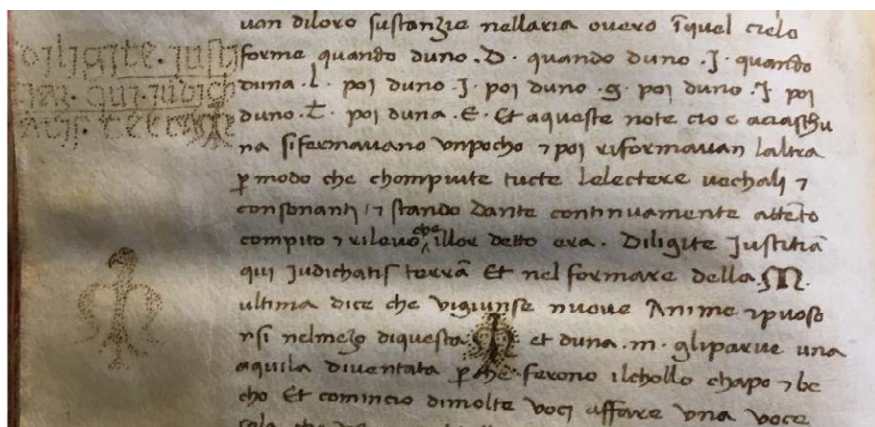 DILIGITE. IUSTI
TIAM. QUI. IUDICH
ATIS. TERRAM
van diloro sustanzie nellaria overo ĩquel cielo
forme quando duno .D. quando duno .J. quando
duna .l. poi duno .J. poi duno .g. poi duno .J poi
duno .t. poi duna .E. Et aqueste note cio e aciaschu
na sifermavano unpocho ⁊ poi riformavan laltra
ꝑ modo che chompiute tucte lelectere vochali ⁊
consonanti / ⁊ stando dante continuamente attẽto
compito ⁊ rilevo che illor detto era. Diligite Justitiã
qui Judichatis terrã Et nel formare della .M.
ultima dice che vigiunse nuove Anime ⁊
rsi nelmezo diquesta M et duna .m. gliparve una
aquila diventata ꝑ che ferono ilchollo chapo ⁊ be
cho Et comincio dimolte voci affare una voce